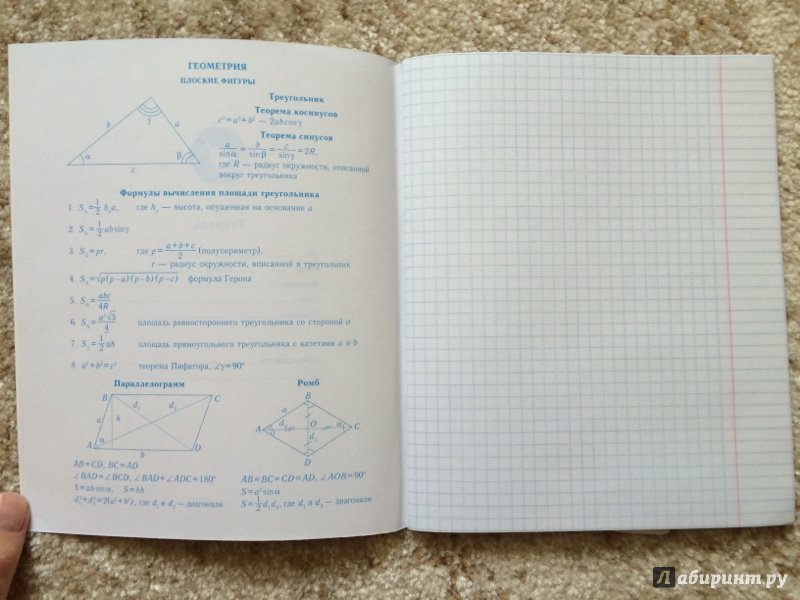 ГЕОМЕТРИЯ
ПЛОСКИЕ ФИГУРЫ
Треугольник
Теорема косинусов
c²=a²+b² — 2ab cos γ
Теорема синусов
a/sin α = b/sin β = c/sin γ = 2R,
где R — радиус окружности, описанной
вокруг треугольника
b γ a
α c β
Формулы вычисления площади треугольника
1. S△=1/2 hₐa, где hₐ — высота, опущенная на основание a
2. S△=1/2 ab sin γ
3. S△=pr, где p=(a+b+c)/2 (полупериметр),
r — радиус окружности, вписанной в треугольник
4. S△=√p(p−a)(p−b)(p−c) формула Герона
5. S△=abc/4R
6. S△=a²√3/4 площадь равностороннего треугольника со стороной a
7. S△=1/2 ab площадь прямоугольного треугольника с катетами a и b
8. a²+b²=c² теорема Пифагора, ∠γ=90°
Параллелограмм
B C
d₁ d₂
a h
A α D
b
AB=CD, BC=AD
∠BAD=∠BCD, ∠BAD+∠ADC=180°
S=ab sin α, S=hb
d₁²+d₂²=2(a²+b²), где d₁ и d₂ — диагонали
Ромб
B
a
A d₂ O α C
d₁
D
AB=BC=CD=AD, ∠AOB=90°
S=a² sin α
S=1/2 d₁d₂, где d₁ и d₂ — диагонали
Лабиринт.ру